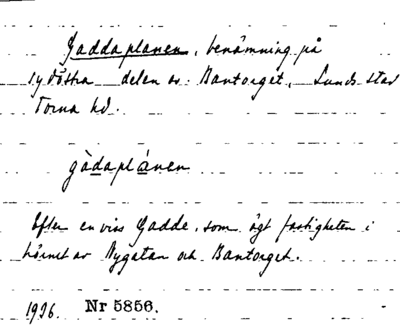 Gaddaplanen, benämning på
sydöstra delen av Bantorget, Lunds stad
Torna hd.
gàdaplánen
Efter en viss Gadde, som ägt fastigheten i
hörnet av Nygatan och Bantorget.
1936. Nr 5856.